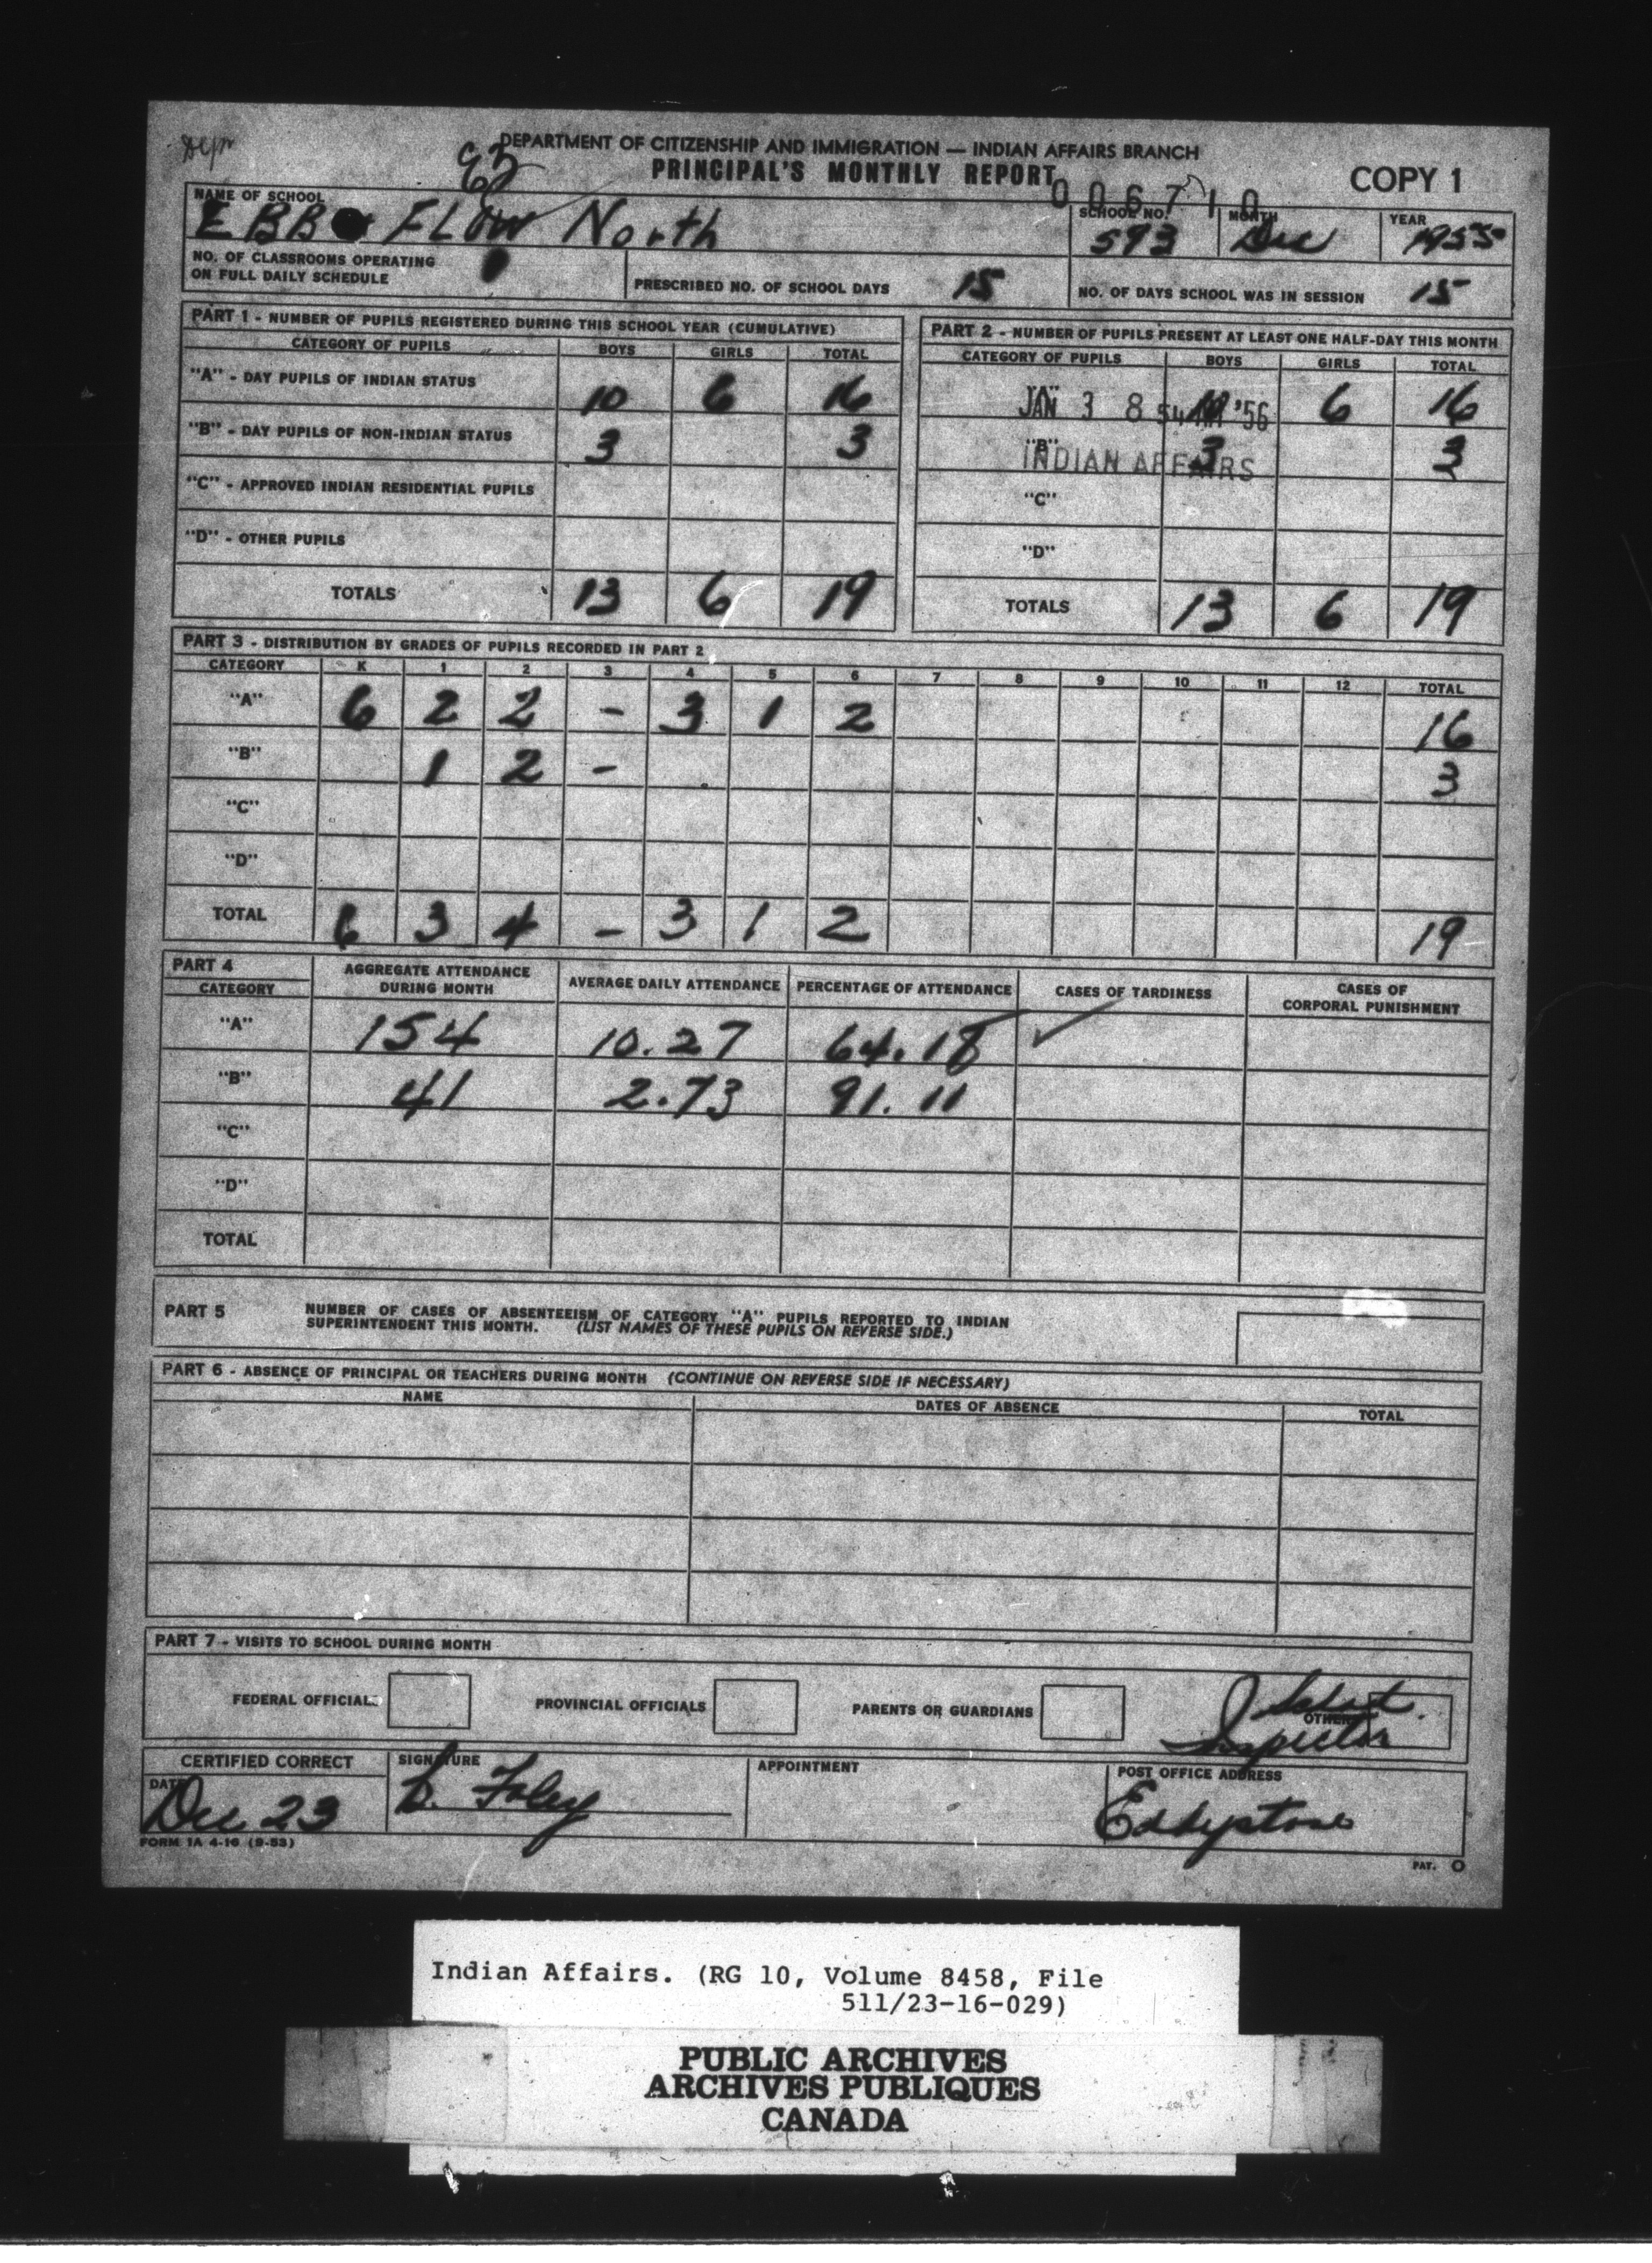 DEPARTMENT OF CITIZENSHIP AND IMMIGRATION — INDIAN AFFAIRS BRANCH
PRINCIPAL'S MONTHLY REPORT
COPY 1
006710
NAME OF SCHOOL SCHOOL NO. MONTH YEAR
EBB & FLOW North 593 Dec 1955
NO. OF CLASSROOMS OPERATING
ON FULL DAILY SCHEDULE PRESCRIBED NO. OF SCHOOL DAYS 15 NO. OF DAYS SCHOOL WAS IN SESSION 15
PART 1 - NUMBER OF PUPILS REGISTERED DURING THIS SCHOOL YEAR (CUMULATIVE)
CATEGORY OF PUPILS BOYS GIRLS TOTAL
"A" - DAY PUPILS OF INDIAN STATUS 10 6 16
"B" - DAY PUPILS OF NON-INDIAN STATUS 3 3
"C" - APPROVED INDIAN RESIDENTIAL PUPILS
"D" - OTHER PUPILS
TOTALS 13 6 19
PART 2 - NUMBER OF PUPILS PRESENT AT LEAST ONE HALF-DAY THIS MONTH
CATEGORY OF PUPILS BOYS GIRLS TOTAL
"A" 10 6 16
JAN 3 8 54 AM '56
"B" 3 3
INDIAN AFFAIRS
"C"
"D"
TOTALS 13 6 19
PART 3 - DISTRIBUTION BY GRADES OF PUPILS RECORDED IN PART 2
CATEGORY K 1 2 3 4 5 6 7 8 9 10 11 12 TOTAL
"A" 6 2 2 - 3 1 2 16
"B" 1 2 - 3
"C"
"D"
TOTAL 6 3 4 - 3 1 2 19
PART 4
CATEGORY AGGREGATE ATTENDANCE DURING MONTH AVERAGE DAILY ATTENDANCE PERCENTAGE OF ATTENDANCE CASES OF TARDINESS CASES OF CORPORAL PUNISHMENT
"A" 154 10.27 64.18
"B" 41 2.73 91.11
"C"
"D"
TOTAL
PART 5 NUMBER OF CASES OF ABSENTEEISM OF CATEGORY "A" PUPILS REPORTED TO INDIAN
SUPERINTENDENT THIS MONTH. (LIST NAMES OF THESE PUPILS ON REVERSE SIDE.)
PART 6 - ABSENCE OF PRINCIPAL OR TEACHERS DURING MONTH (CONTINUE ON REVERSE SIDE IF NECESSARY)
NAME DATES OF ABSENCE TOTAL
PART 7 - VISITS TO SCHOOL DURING MONTH
FEDERAL OFFICIALS PROVINCIAL OFFICIALS PARENTS OR GUARDIANS OTHERS
Inspector
CERTIFIED CORRECT SIGNATURE APPOINTMENT POST OFFICE ADDRESS
DATE
Dec 23 L. Foley Eddystone
FORM 1A 4-16 (9-53)
PAT. O
Indian Affairs. (RG 10, Volume 8458, File
511/23-16-029)
PUBLIC ARCHIVES
ARCHIVES PUBLIQUES
CANADA